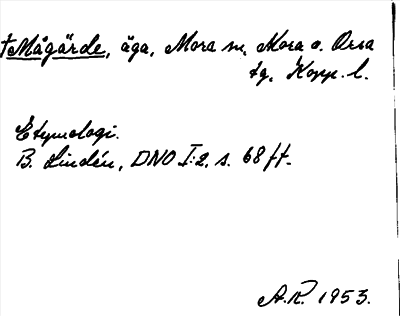 †Mågärde, äga, Mora sn, Mora o. Orsa
tg, Kopp. l.
Etymologi.
B. Lindén, DNO I:2, s. 68 ff.
A.R. 1953.